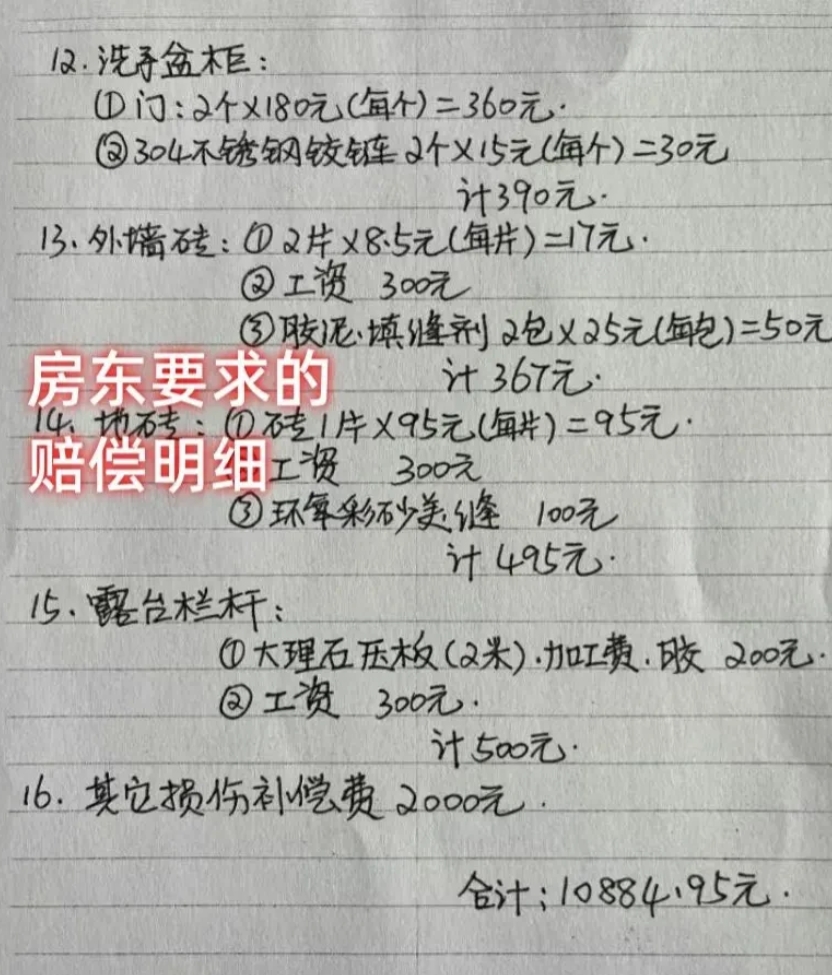 12.洗手盆柜:
①门:2个×180元(每个)=360元.
②304不锈钢铰链2个×15元(每个)=30元
计390元.
13.外墙砖:①2片×8.5元(每片)=17元.
②工资 300元
③胶泥.填缝剂2包×25元(每包)=50元
计367元.
房东要求的
14.地砖:①砖1片×95元(每片)=95元.
赔偿明细
工资 300元
③环氧彩砂美缝 100元
计495元.
15.露台栏杆:
①大理石压板(2米).加工费.胶 200元.
②工资 300元.
计500元.
16.其它损伤补偿费2000元.
合计:10884.95元.